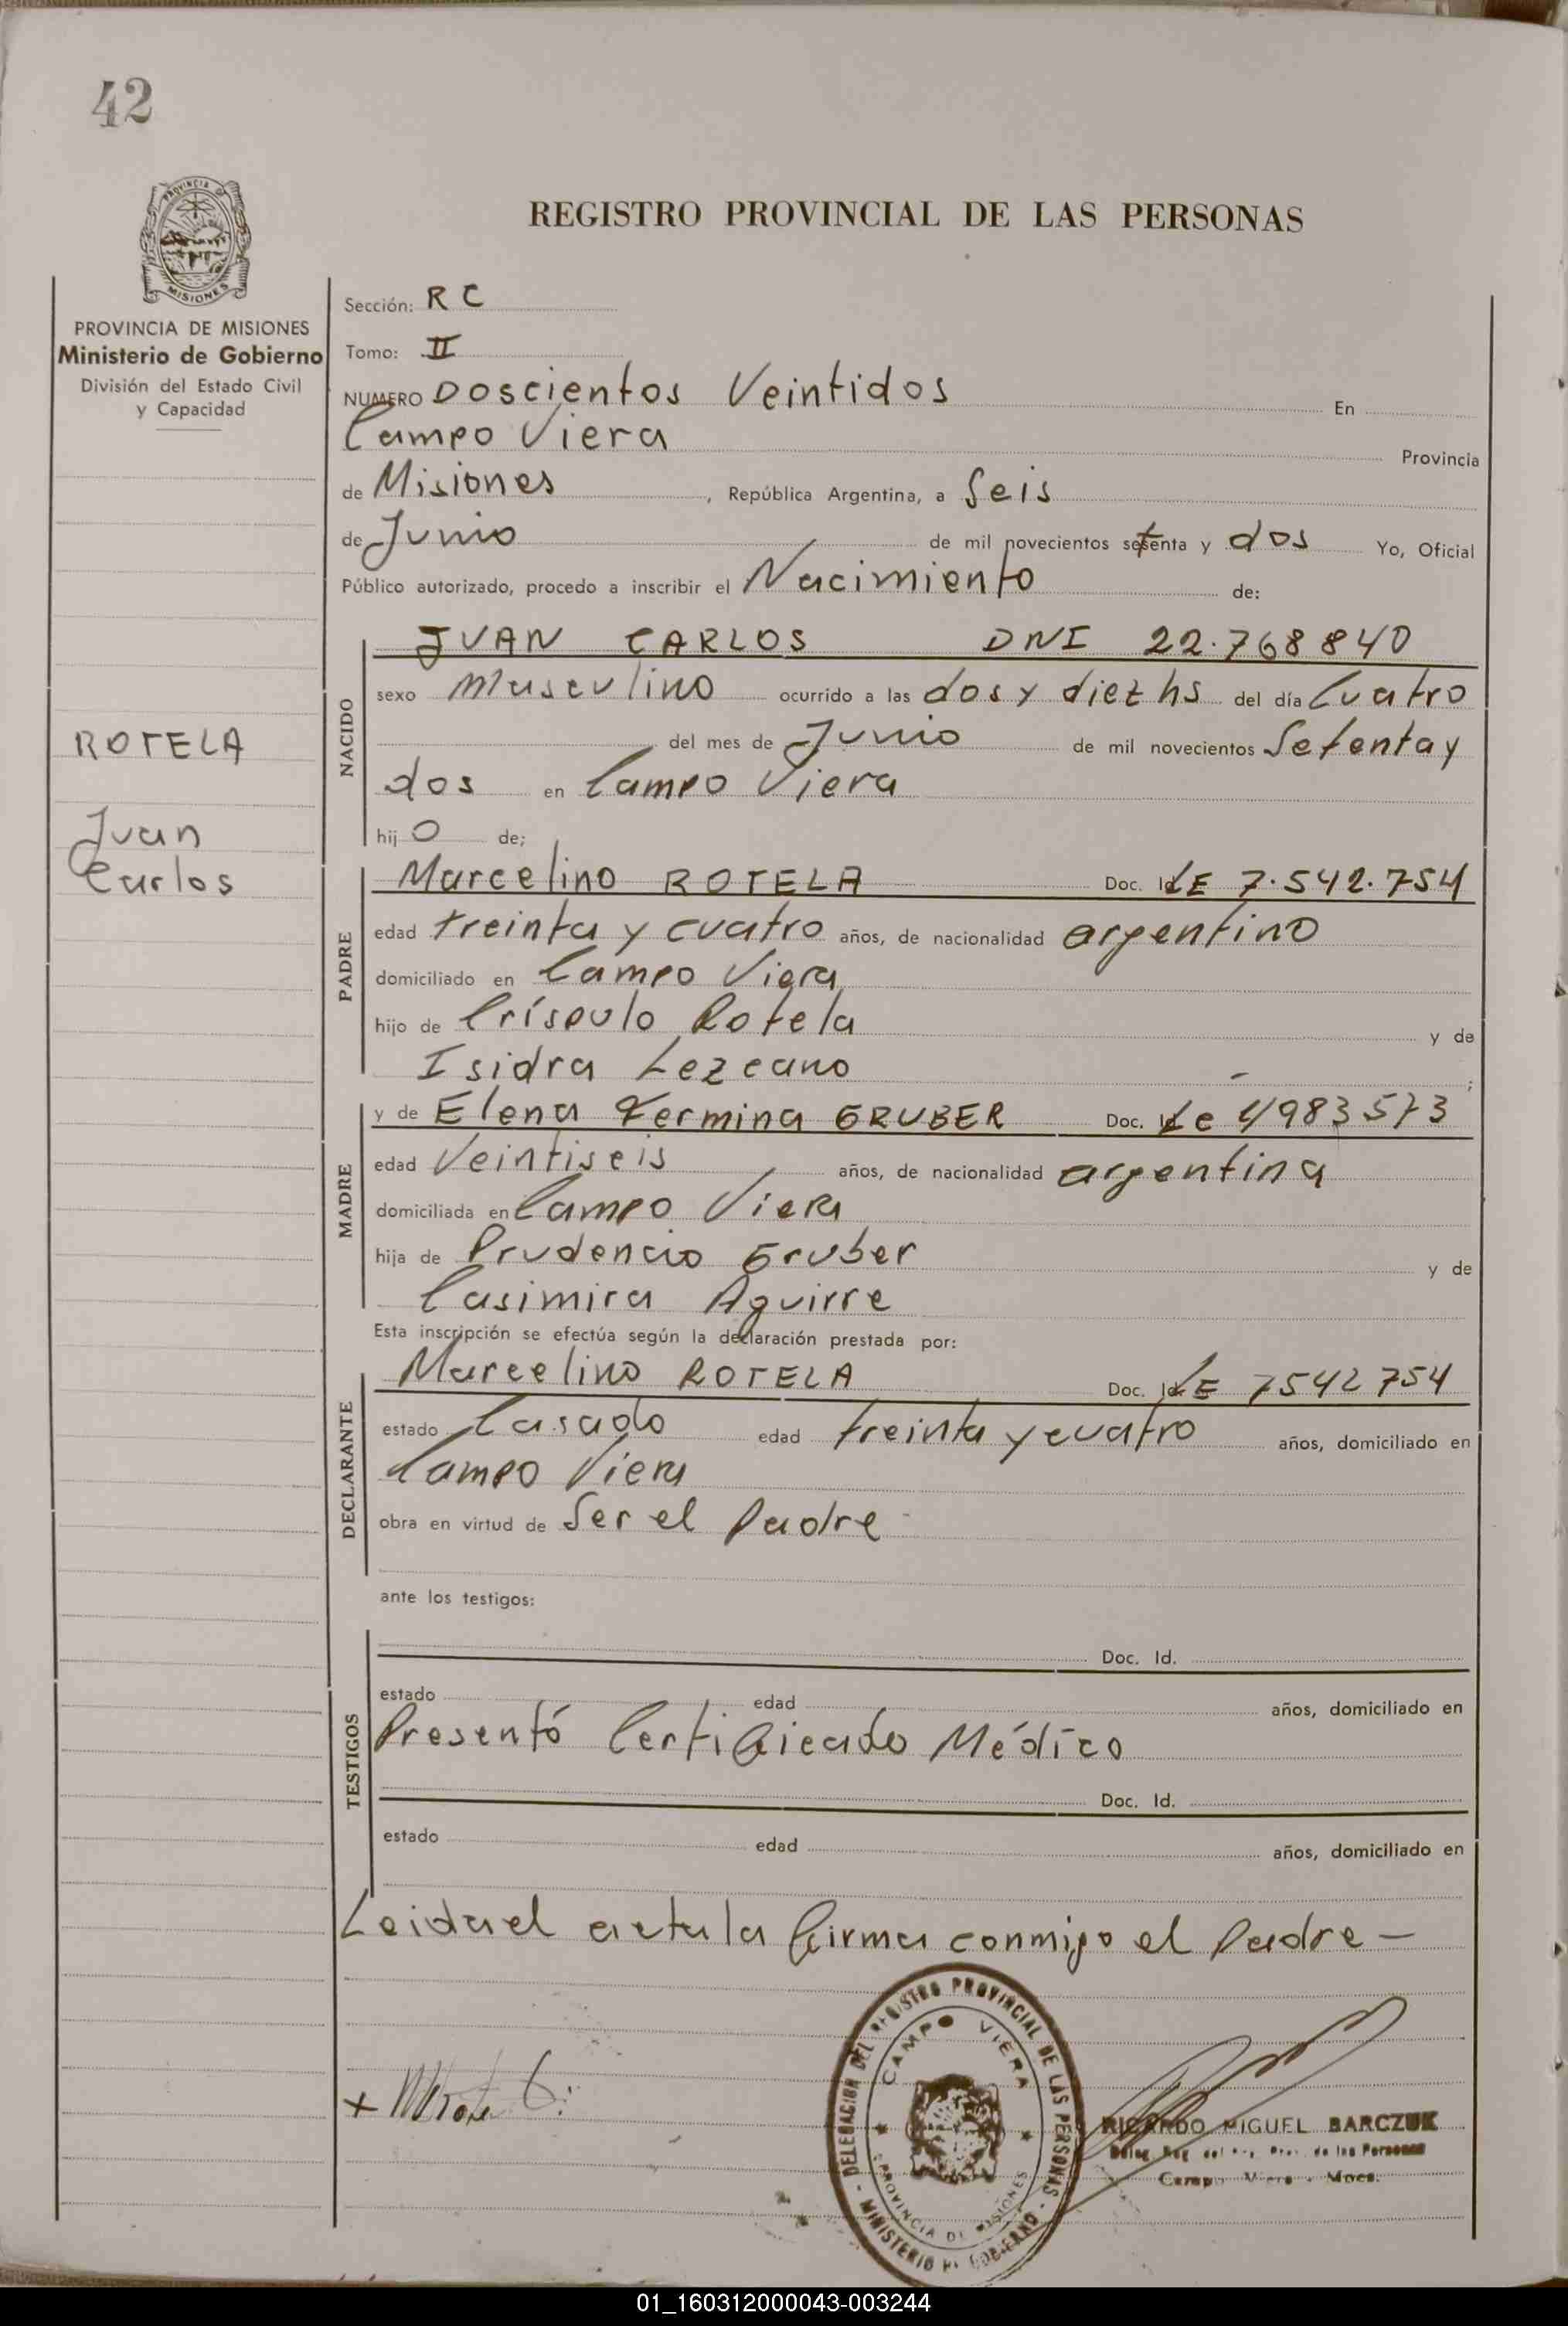 42
PROVINCIA DE
MISIONES
REGISTRO PROVINCIAL DE LAS PERSONAS
PROVINCIA DE MISIONES
Ministerio de Gobierno
División del Estado Civil
y Capacidad
ROTELA
Juan
Carlos
Sección: R C
Tomo: II
NUMERO Doscientos Veintidos En
Campo Viera Provincia
de Misiones, República Argentina, a Seis
de Junio de mil novecientos setenta y dos Yo, Oficial
Público autorizado, procedo a inscribir el Nacimiento de:
NACIDO
JUAN CARLOS DNI 22.768840
sexo Masculino ocurrido a las dos y diez hs del día Cuatro
del mes de Junio de mil novecientos Setenta y
dos en Campo Viera
hijo de;
PADRE
Marcelino ROTELA Doc. LE 7.542.754
edad treinta y cuatro años, de nacionalidad argentino
domiciliado en Campo Viera
hijo de Críspulo Rotela y de
Isidra Lezcano - ;
MADRE
y de Elena Fermina GRUBER Doc. Lc 4983573
edad Veintiseis años, de nacionalidad argentina
domiciliada en Campo Viera
hija de Prudencio Gruber y de
Casimira Aguirre
Esta inscripción se efectúa según la declaración prestada por:
DECLARANTE
Marcelino ROTELA Doc. LE 7542754
estado Casado edad treinta y cuatro años, domiciliado en
Campo Viera
obra en virtud de Ser el Padre -
ante los testigos:
TESTIGOS
Doc. Id.
estado edad años, domiciliado en
Presentó Certificado Médico
Doc. Id.
estado edad años, domiciliado en
Leida el acta la firma conmigo el Padre —
DELEGACION DEL REGISTRO PROVINCIAL DE LAS PERSONAS - MINISTERIO DE GOBIERNO -
CAMPO VIERA
PROVINCIA DE MISIONES
RICARDO MIGUEL BARCZUK
de las Personas
Campo Viera - Mnes.
01_160312000043-003244